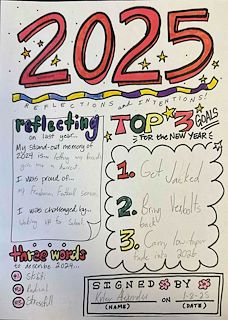 2025
REFLECTIONS and INTENTIONS!
reflecting
on last year...
My stand-out memory of
2024 is... letting my friends
give me a haircut
I was proud of...
my Freshman Football season
I was challenged by...
Waking up to School
three words
to describe 2024...
#1
#2 Radical
#3 Stressful
TOP 3 GOALS
FOR the NEW YEAR
1. Get Jacked
2. Bring
back
3. Carry low-taper
fade into 2026
SIGNED BY
ON 1-8-25
(NAME) (DATE)